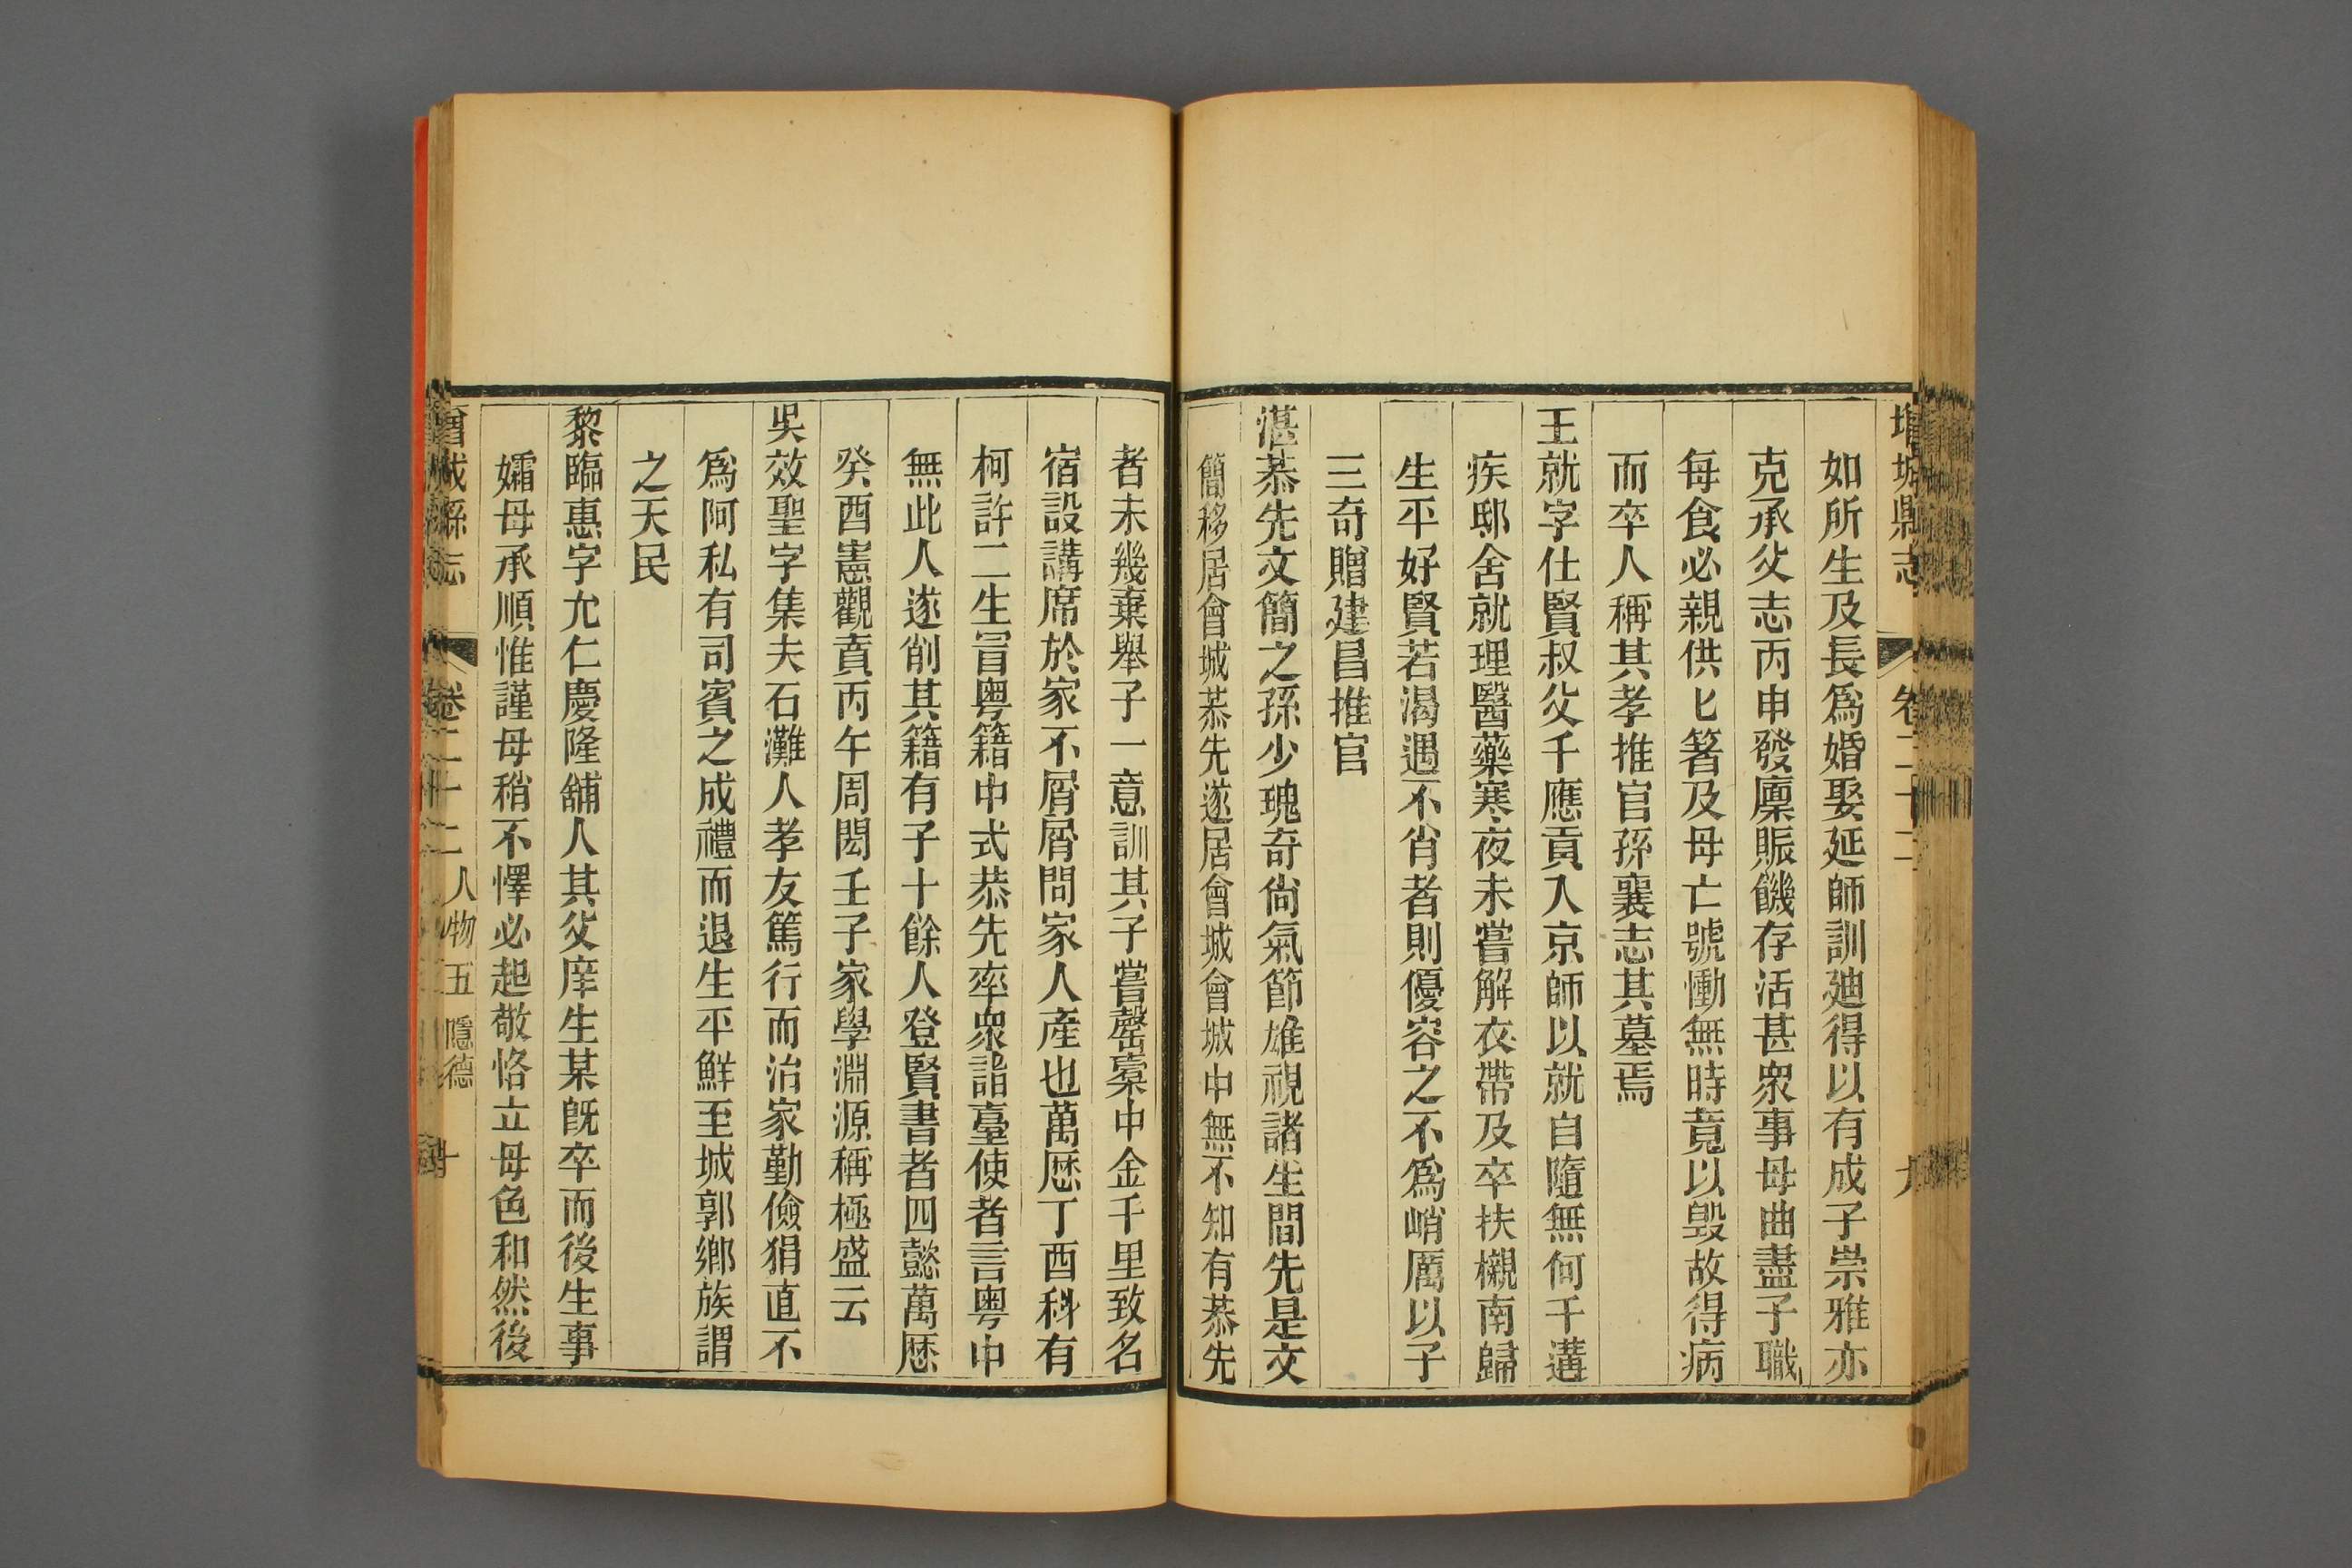 增城縣志
卷二十二
九
如所生及長爲婚娶延師訓廸得以有成子崇雅亦
克承父志丙申發廩賑饑存活甚衆事母曲盡子職
每食必親供匕箸及母亡號慟無時竟以毁故得病
而卒人稱其孝推官孫襄志其墓焉
王就字仕賢叔父千應貢入京師以就自隨無何千遘
疾邸舍就理醫藥寒夜未嘗解衣帶及卒扶櫬南歸
生平好賢若渴遇不肖者則優容之不爲峭厲以子
三奇贈建昌推官
湛恭先文簡之孫少瑰奇尙氣節雄視諸生間先是文
簡移居會城恭先遂居會城會城中無不知有恭先
者未幾棄舉子一意訓其子嘗罄橐中金千里致名
宿設講席於家不屑屑問家人產也萬厯丁酉科有
柯許二生冒粤籍中式恭先率衆詣臺使者言粤中
無此人遂削其籍有子十餘人登賢書者四懿萬厯
癸酉憲觀賁丙午周閎壬子家學淵源稱極盛云
吳效聖字集夫石灘人孝友篤行而治家勤儉狷直不
爲阿私有司賓之成禮而退生平鮮至城郭鄉族謂
之天民
黎臨惠字允仁慶隆舖人其父庠生某旣卒而後生事
孀母承順惟謹母稍不懌必起敬恪立母色和然後
曾城縣志
卷二十二
人物五 隱德
十